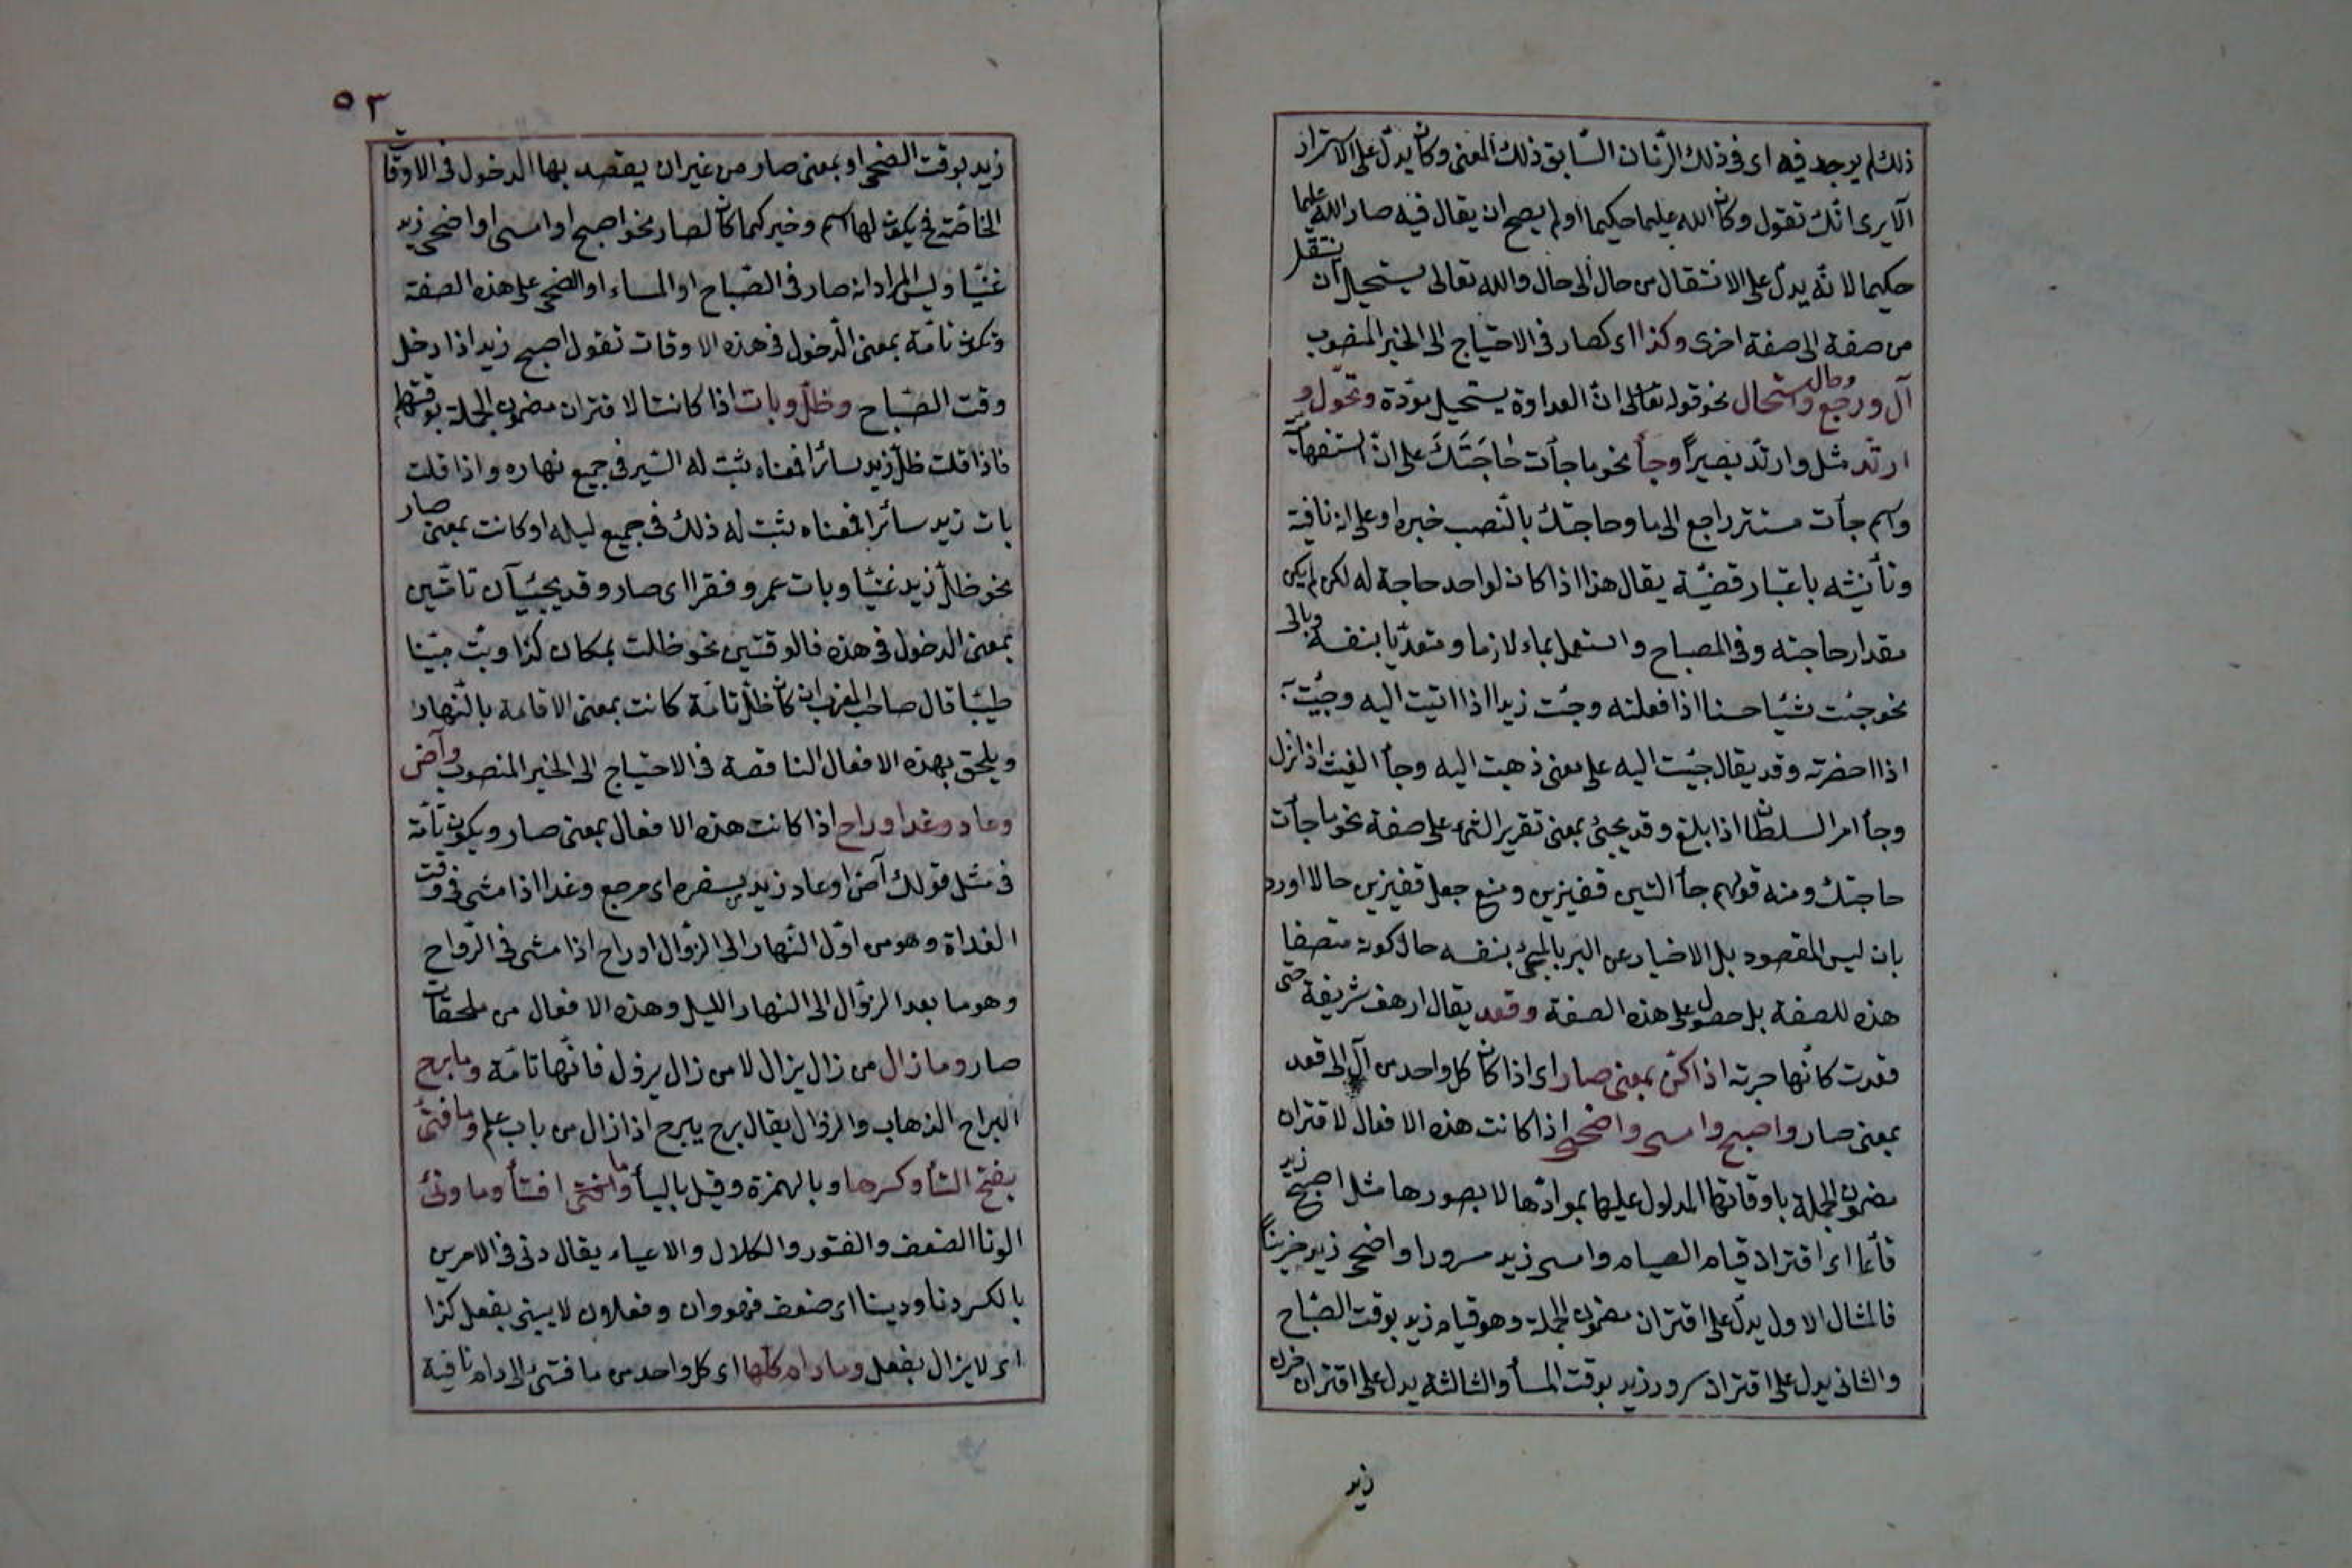 ذلك لم يوجد فيه اى فى ذلك الزمان السابق ذلك المعنى وكان يدل على الاستمرار
الا يرى انك تقول وكان الله عليما حكيما ولم يصح ان يقال فيه صار الله عليما
حكيما لانه يدل على الانتقال من حال الى حال والله تعالى يستحيل ان ينتقل
من صفة الى صفة اخرى وكذا اى كصار فى الاحتياج الى الخبر المنصوب
آل ورجع وحال واستحال نحو قوله تعالى ان العداوة يستحيل مودة وتحول و
ارتد مثل وارتد بصيرا وجأ نحو ما جأت حَاجَتَكَ على ان استفهامية
واسم جأت مستتر راجع الى ما وحاجتك بالنصب خبره او على انه نافية
وتأنيثه باعتبار قضية يقال هذا اذا كان لواحد حاجة له لكن لم يكن
مقدار حاجته وفى المصباح واستعمل جاء لازما ومتعديا بنفسه وبالى
نحو جئت شيئا حسنا اذا فعلته وجئت زيدا اذا اتيت اليه وجئت به
اذا احضرته وقد يقال جئت اليه على معنى ذهبت اليه وجأ الغيث اذا نزل
وجأ امر السلطان اذا بلغ وقد يجئ بمعنى تقرير الشئ على صفة نحو ما جأت
حاجتك ومنه قولهم جأ البر قفيزين ومنع جعل قفيزين حالا اورد
بان ليس المقصود بل الاخبار عن البر بالمجئ بنفسه حال كونه متصفا
هذه للصفة بل حصول على هذه الصفة وقعد يقال ارهف شريفة حتى
قعدت كانها حربة اذا كن بمعنى صار اى اذا كان كل واحد من آل الى قعد
بمعنى صار واصبح وامسى واضحى اذا كانت هذه الافعال لاقتران
مضمون الجملة باوقاتها المدلول عليها بموادها لا بصورها مثل اصبح زيد
قائما اى اقتران قيام الصباح وامسى زيد مسرورا واضحى زيد حزينا
فالمثال الاول يدل على اقتران مضمون الجملة وهو قيام زيد بوقت الصباح
والثانى يدل على اقتران سرور زيد بوقت المسأ والثالثة يدل على اقتران حزن
زيد
٥٣
زيد بوقت الضحى او بمعنى صار من غير ان يقصد بها الدخول فى الاوقات
الخاصة فح يكون لها اسم وخبر كما كان لصار نحو اصبح او امسى او اضحى زيد
غنيا وليس المراد انه صار فى الصباح او المساء او الضحى على هذه الصفة
وتكون تامة بمعنى الدخول فى هذه الاوقات تقول اصبح زيد اذا دخل
وقت الصباح وظل وبات اذا كانتا لاقتران مضمون الجملة بوقتهما
فاذا قلت ظل زيد سائرا فمعناه ثبت له السير فى جميع نهاره واذا قلت
بات زيد سائرا فمعناه ثبت له ذلك فى جميع ليله او كانت بمعنى صار
نحو ظل زيد غنيا وبات عمرو فقيرا اى صار وقد يجيئان تامتين
بمعنى الدخول فى هذه فالوقتين نحو ظللت بمكان كذا وبت مبيتا
طيبا قال صاحب المغرب ان كان ظل تامة كانت بمعنى الاقامة بالنهار
ويلحق بهذه الافعال الناقصة فى الاحتياج الى الخبر المنصوب وآض
وعاد وغدا وراح اذا كانت هذه الافعال بمعنى صار ويكون تامة
فى مثل قولك آض او عاد زيد بسفره اى مرجع وغدا اذا مشى فى وقت
الغداة وهو من اول النهار الى الزوال او راح اذا مشى فى الرواح
وهو ما بعد الزوال الى النهار الليل وهذه الافعال من ملحقات
صار وما زال من زال يزال لا من زال يزول فانها تامة وما برح
البراح الذهاب والزوال يقال برح يبرح اذا زال من باب علم وما فتئ
بفتح التأ وكسرها وبالهمزة وقيل باليأ وما افتئ افتأ وما ونى
الونا الضعف والفتور والكلال والاعياء يقال ونى فى الامر من
بالكسر ونا ودينا اى ضعف فهو وان وفعلان لا يبنى بفعل كذا
اى لا يزال يفعل وما دام كلها اى كل واحد من ما فتئ الى دام نافية